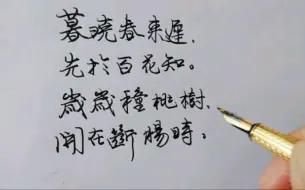 暮曉春來遲，
先於百花知。
歲歲種桃樹，
開在斷腸時。